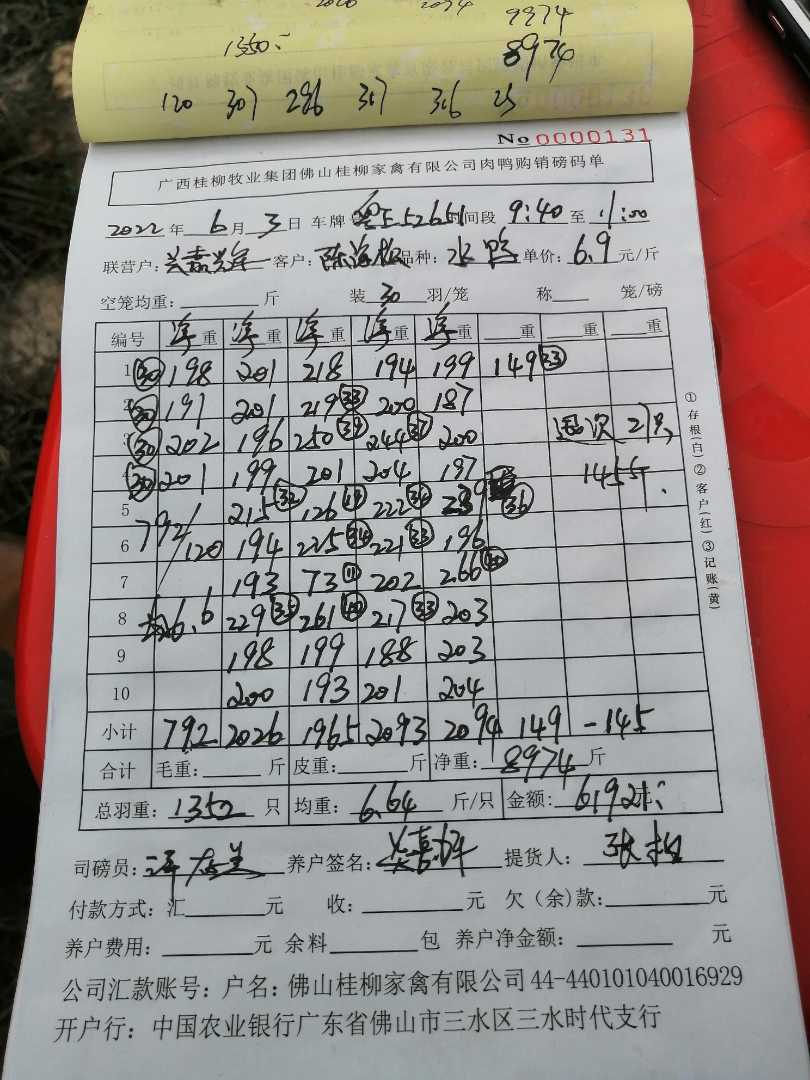 9974
1350 8974
120 307 296 317 316 25
No 0000131
广西桂柳牧业集团佛山桂柳家禽有限公司肉鸭购销磅码单
2022 年 6 月 3 日 车牌 52651 时间段 9:40 至 11:00
联营户: 客户: 陈海 品种: 水鸭 单价: 6.9 元/斤
空笼均重: 斤 装 30 羽/笼 称 笼/磅
编号 净重 净重 净重 净重 净重 重 重 重
1 30 198 201 218 194 199 149 33
2 30 191 201 219 33 200 187
3 30 202 196 250 39 244 37 200 次 21只
4 30 201 199 201 204 197 145斤
5 215 32 126 19 222 34 36
6 792/120 194 225 34 221 33 196
7 193 73 11 202 266 40
8 均6.6 229 35 261 40 217 33 203
9 198 199 188 203
10 200 193 201 204
小计 792 2026 1965 2093 2094 149 -145
合计 毛重: 斤 皮重: 斤 净重: 8974 斤
总羽重: 1350 只 均重: 6.64 斤/只 金额: 61921
司磅员: 养户签名: 提货人: 张
付款方式: 汇 元 收: 元 欠(余)款: 元
养户费用: 元 余料 包 养户净金额: 元
公司汇款账号: 户名: 佛山桂柳家禽有限公司 44-440101040016929
开户行: 中国农业银行广东省佛山市三水区三水时代支行
①存根(白)②客户(红)③记账(黄)